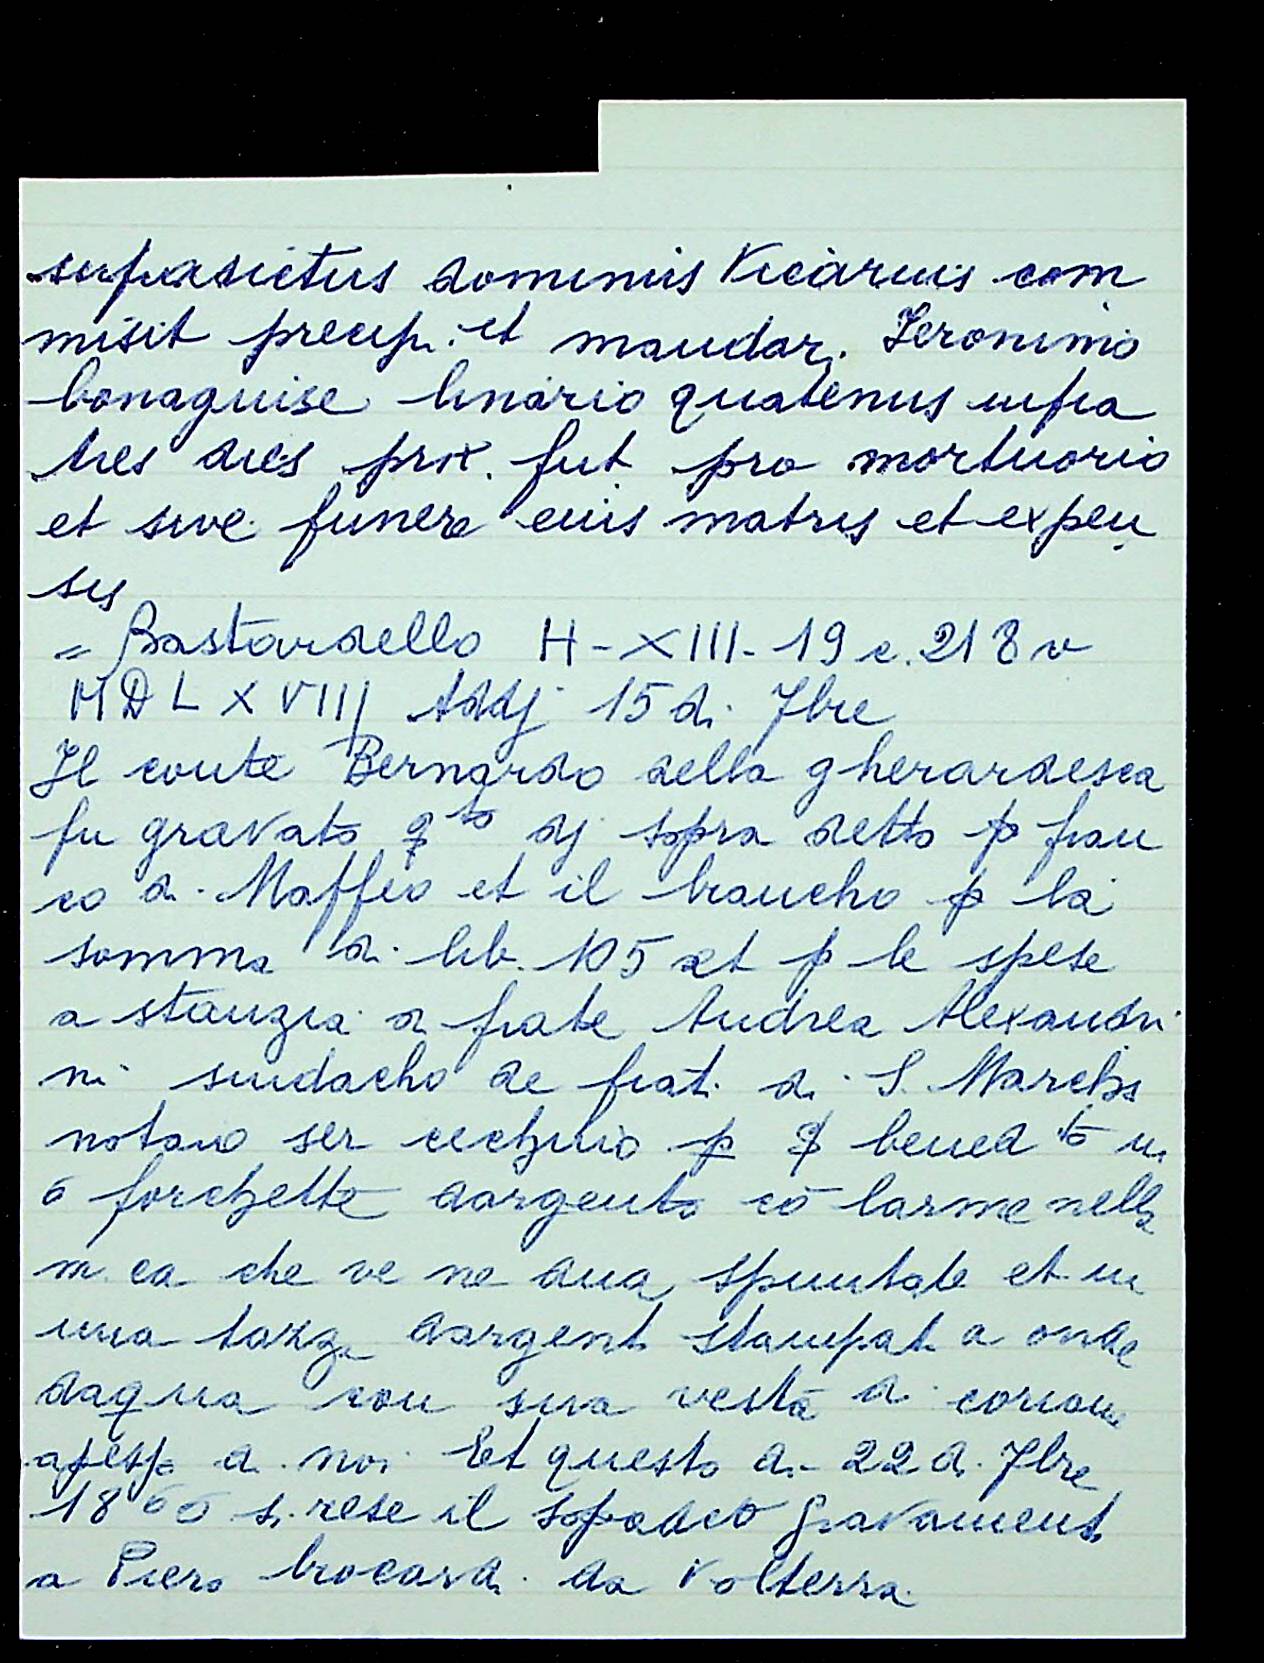 supradictus dominus Vicarius com
misit precip. et mandar. Jeronimo
bonaguise linario quatenus infra
tres dies prox. fut. pro mortuorio
et sive funere eius matris et expen
sis
= Bastardello H-XIII-19 c. 218 v
MDLXVIII Addj 15 di 7bre
Il conte Bernardo della gherardesca
fu gravato q.to dj sopra detto p fran
co di Maffeo et il brancho p la
somma di lib. 105 et p le spese
a stanzia di frate Andrea Alexandri
ni sindacho de frati di S. Marcho
notaio ser cechino p benedto in
6 forchette dargento cō larme nella
m ca che ve ne dua spuntate et in
una tazza dargento stampata a onde
daqua con sua vesta di coriame
apesso di noi Et questo di 22 di 7bre
1866 si rese il sopradeto gravamento
a Piero brocardi da Volterra